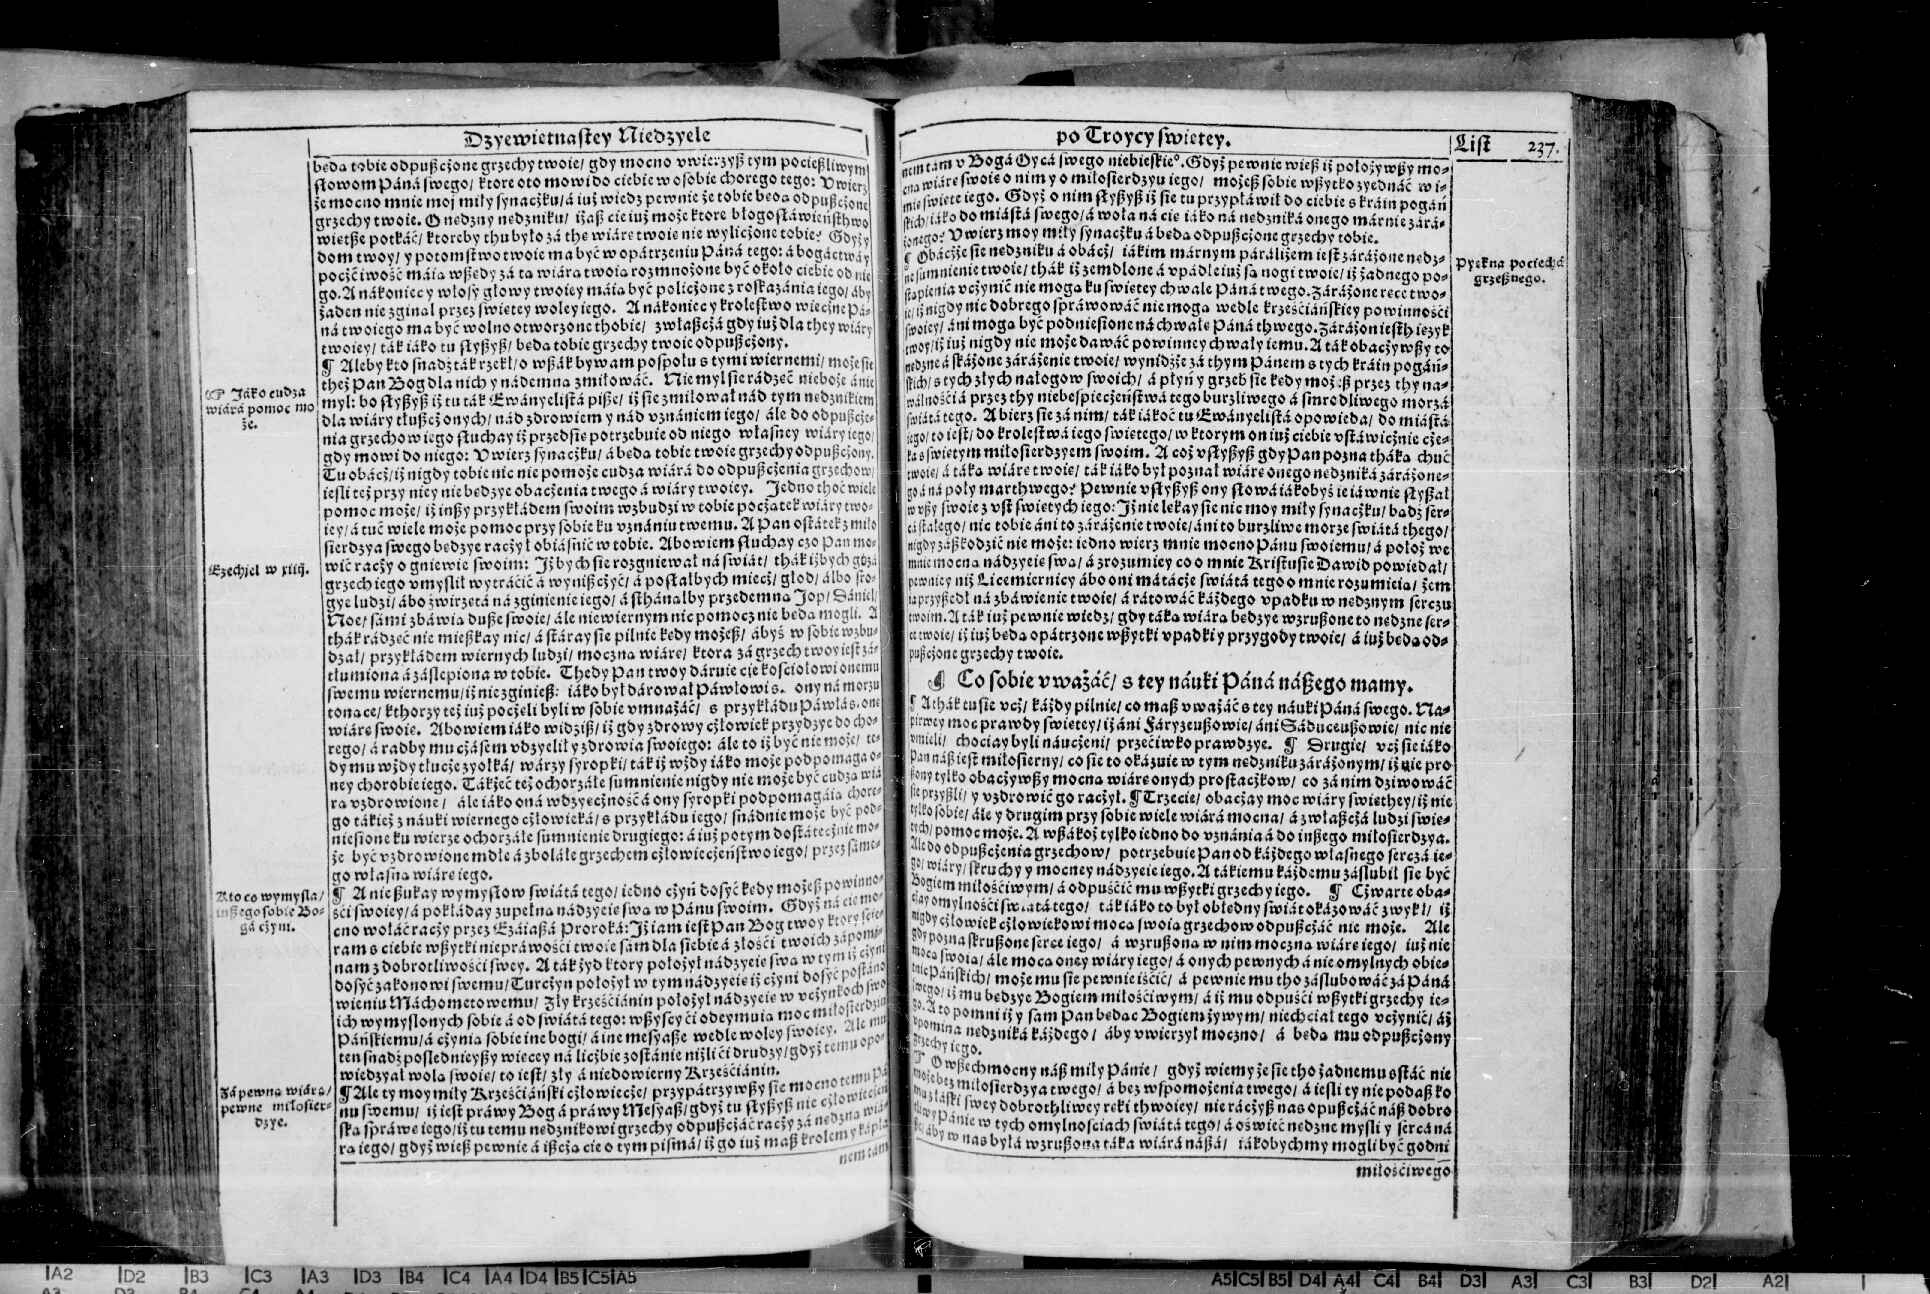 Dzyewietnastey Niedzyele
beda tobie odpußcżone grzechy twoie/ gdy mocno vwierzyß tym pocießliwym
słowom Páná swego/ ktore oto mowi do ciebie w osobie chorego tego: Vwierz
że mocno mnie moj miły synacżku/ á iuż wiedz pewnie że tobie beda odpußcżone
grzechy twoie. O nedzny nedzniku/ iżaß cie iuż może ktore błogosłáwieństhwo
wietße potkáć/ ktoreby thu było zá the wiáre twoie nie wylicżone tobie? Gdyży
dom twoy/ y potomstwo twoie ma być w opátrzeniu Páná tego: á bogáctwá y
pocżciwość máia wßedy zá ta wiára twoia rozmnożone być około ciebie od nie
go. A nákoniec y włosy głowy twoiey máia być policżone z roskazánia iego/ áby
żaden nie zginał przez swietey woley iego. A nákoniec y krolestwo wiecżne Pá-
ná twoiego ma być wolno otworzone thobie/ zwłaßcżá gdy iuż dla they wiáry
twoiey/ ták iáko tu słyßyß/ beda tobie grzechy twoie odpußcżony.
¶ Aleby kto snadź ták rzekł/ o wßák bywam pospołu s tymi wiernemi/ może sie
theż Pan Bog dla nich y nádemna zmiłowáć. Nie myl sie rádzeć nieboże ánie
myl: bo słyßyß iż tu ták Ewányelistá piße/ iż sie zmiłował nád tym nedznikiem
dla wiáry tłußcż onych/ nád zdrowiem y nád vznániem iego/ ále do odpußcże-
nia grzechow iego słuchay iż przedsie potrzebuie od niego własney wiáry iego/
gdy mowi do niego: Vwierz synacżku/ á beda tobie twoie grzechy odpußcżony.
Tu obácż/ iż nigdy tobie nic nie pomoże cudza wiárá do odpußcżenia grzechow/
iesli też przy niey nie bedzye obacżenia twego á wiáry twoiey. Jedno thoć wiele
pomoc może/ iż inßy przykłádem swoim wzbudzi w tobie pocżatek wiáry two-
iey/ á tuć wiele może pomoc przy sobie ku vznániu twemu. A Pan ostátek z miło
sierdzya swego bedzye racżył obiáśnić w tobie. Abowiem słuchay czo Pan mo-
wić racży o gniewie swoim: Jż bych sie rozgniewał ná świát/ thák iżbych
grzech iego vmyslił wytráćić á wynißcżyć/ á posłałbych miecż/ głod/ álbo sro-
gye ludzi/ ábo źwirzetá ná zginienie iego/ á sthánałby przedemna Jop/ Dániel/
Noe/ sámi zbáwia duße swoie/ ále niewiernym nie pomocz nie beda mogli. A
thák rádzeć nie mießkay nic/ á stáray sie pilnie kedy możeß/ ábyś w sobie wzbu-
dzał/ przykłádem wiernych ludzi/ moczna wiáre/ ktora zá grzech twoy iest zá-
tłumiona á záslepiona w tobie. Thedy Pan twoy dáruie cie kościołowi onemu
swemu wiernemu/ iż nie zginieß: iáko był dárował Páwłowi s. ony ná morzu
tonace/ kthorzy też iuż pocżeli byli w sobie vmnażáć/ s przykłádu Páwłá s. one
wiáre swoie. Abowiem iáko widziß/ iż gdy zdrowy cżłowiek przydzye do cho-
rego/ á radby mu cżásem vdzyelił y zdrowia swoiego: ále to iż być nie może/ te-
dy mu wżdy tłucże zyołká/ wárzy syropki/ ták iż wżdy iáko może podpomaga o-
ney chorobie iego. Tákżeć też ochorzáłe sumnienie nigdy nie może być cudza wiá
ra vzdrowione/ ále iáko oná wdzyecżność á ony syropki podpomagáia chore-
go tákież z náuki wiernego cżłowieká/ s przykłádu iego/ snádnie może być pod-
niesione ku wierze ochorzáłe sumnienie drugiego: á iuż potym dostátecżnie mo-
że być vzdrowione mdłe á zboláłe grzechem cżłowiecżeństwo iego/ przez sáme-
go własna wiáre iego.
¶ A nie ßukay wymysłow świátá tego/ iedno cżyń dosyć kedy możeß powinno-
ści swoiey/ á pokłáday zupełna nádzyeie swa w Pánu swoim. Gdyż ná cie mo-
cno wołáć racży przez Ezáiaßá Proroká: Jż iam iest Pan Bog twoy ktory ście-
ram s ciebie wßytki niepráwości twoie sam dla siebie á złości twoich zápomi-
nam z dobrotliwości swey. A ták żyd ktory położył nádzyeie swa w tym iż cżyni
dosyć zakonowi swemu/ Turcżyn położył w tym nádzyeie iż cżyni dosyć postáno
wieniu Máchometowemu/ Zły krześciánin położył nádzyeie w vcżynkoch swo
ich wymyslonych sobie á od świátá tego: wßyscy ći odeymuia moc miłosierdziu
Páńskiemu/ á cżynia sobie ine bogi/ á ine mesyaße wedle woley swoiey. Ale mu
ten snadź posledniey ßy wiecey ná licżbie zostánie niżli ći drudzy/ gdyż temu opo-
wiedzyał wola swoie/ to iest/ zły á niedowierny Krześciánin.
¶ Ale ty moy miły Krześciáński cżłowiecże/ przypátrzywßy sie mocno temu Pá
nu swemu/ iż iest práwy Bog á práwy Mesyaß/ gdyż tu słyßyß nie cżłowiecżeń
ska spráwe iego/ iż tu temu nedznikowi grzechy odpußcżáć racży zá nedzna wiá-
ra iego/ gdyż wieß pewnie á ißcża cie o tym pismá/ iż go iuż maß krolem y kápłá
nem tám
☞ Jáko cudza
wiárá pomoc mo
że.
Ezechjel w xiiij.
Kto co wymysla/
inßego sobie Bo-
gá cżyni.
Zá pewna wiára/
pewne miłosier-
dzye.
po Troycy swietey.
List 237.
nem tám v Bogá Oycá swego niebieskie°. Gdyż pewnie wieß iż położywßy mo-
cna wiáre swoie o nim y o miłosierdzyu iego/ możeß sobie wßytko zyednáć w i-
mie swiete iego. Gdyż o nim słyßyß iż sie tu przypłáwił do ciebie s kráin pogáń
skich/ iáko do miástá swego/ á woła ná cie iáko ná nedzniká onego márnie zárá-
żonego? Vwierz moy miły synacżku á beda odpußcżone grzechy tobie.
¶ Obacżże sie nedzniku á obacż/ iákim márnym páráliżem iest zárażone nedz-
ne sumnienie twoie/ thák iż zemdlone á vpádłe iuż sa nogi twoie/ iż żadnego po-
stapienia vcżynić nie moga ku swietey chwale Páná twego. Zárażone rece two-
ie/ iż nigdy nic dobrego spráwowáć nie moga wedle krześciáńskiey powinności
swoiey/ áni moga być podniesione ná chwałe Páná thwego. Zárażon iesth iezyk
twoy/ iż iuż nigdy nie może dawáć powinney chwały iemu. A ták obacżywßy to
nedzne á skáżone zárażenie twoie/ wynidźże zá thym Pánem s tych kráin pogáń-
skich/ s tych złych nałogow swoich/ á płyń y grzeb sie kedy możeß przez thy na-
wálności á przez thy niebespiecżeństwá tego burzliwego á smrodliwego morzá
świátá tego. A bierz sie zá nim/ ták iákoć tu Ewányelistá opowieda/ do miástá
iego/ to iest/ do krolestwá iego swietego/ w ktorym on iuż ciebie vstáwicżnie cże-
ka s swietym miłosierdzyem swoim. A coż vsłyßyß gdy Pan pozna tháka chuć
twoie/ á táka wiáre twoie/ ták iáko był poznał wiáre onego nedzniká zárażone-
go á ná poły marthwego? Pewnie vsłyßyß ony słowá iákobyś ie iáwnie słyßał
w vßy swoie z vst swietych iego: Jż nie lekay sie nic moy miły synacżku/ badź ser-
cá stałego/ nic tobie áni to zárażenie twoie/ áni to burzliwe morze świátá thego/
nigdy záßkodzić nie może: iedno wierz mnie mocno Pánu swoiemu/ á położ we
mnie mocna nádzyeie swa/ á zrozumiey co o mnie Kristusie Dawid powiedał/
pewniey niż Licemiernicy ábo oni mátácże świátá tego o mnie rozumieia/ żem
ia przyßedł ná zbáwienie twoie/ á rátowáć káżdego vpadku w nedznym serczu
twoim. A ták iuż pewnie wiedz/ gdy táka wiárá bedzye wzrußone to nedzne ser-
ce twoie/ iż iuż beda opátrzone wßytki vpadki y przygody twoie/ á iuż beda od-
pußcżone grzechy twoie.
¶ Co sobie vważáć/ s tey náuki Páná náßego mamy.
¶ A thák tu sie vcż/ káżdy pilnie/ co maß vważáć s tey náuki Páná swego. Na-
pirwey moc prawdy swietey/ iż áni Fáryzeußowie/ áni Sáduceußowie/ nic nie
vmieli/ chociay byli náucżeni/ przećiwko prawdzye. ¶ Drugie/ vcż sie iáko
Pan náß iest miłosierny/ co sie to okázuie w tym nedzniku zárażonym/ iż nie pro
ßony tylko obacżywßy mocna wiáre onych prostacżkow/ co zá nim dziwowáć
sie przyßli/ y vzdrowić go racżył. ¶ Trzecie/ obacżay moc wiáry swiethey/ iż nie
tylko sobie/ ále y drugim przy sobie wiele wiárá mocna/ á zwłaßcżá ludzi swie-
tych/ pomoc może. A wßákoż tylko iedno do vznánia á do inßego miłosierdzya.
Ale do odpußcżenia grzechow/ potrzebuie Pan od káżdego własnego serczá ie-
go/ wiáry/ skruchy y mocney nádzyeie iego. A tákiemu káżdemu záslubił sie być
Bogiem miłościwym/ á odpuścić mu wßytki grzechy iego. ¶ Cżwarte oba-
cżay omylności świátá tego/ ták iáko to był obłedny świát okázowáć zwykł/ iż
nigdy cżłowiek cżłowiekowi moca swoia grzechow odpußcżáć nie może. Ale
gdy pozna skrußone serce iego/ á wzrußona w nim moczna wiáre iego/ iuż nie
moca swoia/ ále moca oney wiáry iego/ á onych pewnych á nie omylnych obie-
tnic Páńskich/ może mu sie pewnie iścić/ á pewnie mu tho záslubowáć zá Páná
swego/ iż mu bedzye Bogiem miłościwym/ á iż mu odpuści wßytki grzechy ie-
go. A to pomni iż y sam Pan bedac Bogiem żywym/ niechciał tego vcżynić/ áż
vpomina nedzniká káżdego/ áby vwierzył moczno/ á beda mu odpußcżony
grzechy iego.
¶ O wßechmocny náß miły Pánie/ gdyż wiemy że sie tho żadnemu sstáć nie
może bez miłosierdzya twego/ á bez wspomożenia twego/ á iesli ty nie podaß ko
mu z łáski swey dobrothliwey reki thwoiey/ nie racżyß nas opußcżáć náß dobro
tliwy Pánie w tych omylnościach świátá tego/ á oświeć nedzne mysli y sercá ná
ße/ áby w nas była wzrußona táka wiárá náßá/ iákobychmy mogli być godni
miłościwego
Pyekna pociechá
grzeßnego.
A2 D2 B3 C3 A3 D3 B4 C4 A4 D4 B5 C5 A5
A5 C5 B5 D4 A4 C4 B4 D3 A3 C3 B3 D2 A2